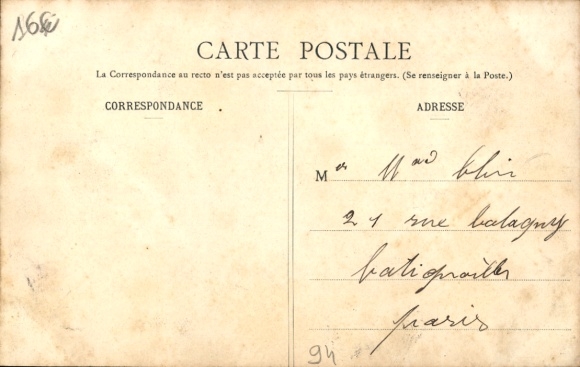 16€
CARTE POSTALE
La Correspondance au recto n'est pas acceptée par tous les pays étrangers. (Se renseigner à la Poste.)
CORRESPONDANCE
ADRESSE
M
21 rue balagny
batignolles
paris
94